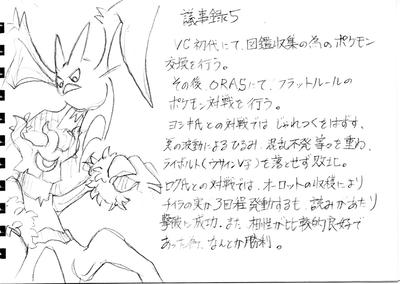 議事録5
VC初代にて、図鑑収集の為のポケモン
交換を行う。
その後、ORASにて、フラットルールの
ポケモン対戦を行う。
ヨシキ氏との対戦では じゃれつくをはずす、
悪の波動によるひるみ、混乱不発 等々を重ね、
ライボルト(ウサインV字)を落とせず敗北。
ログ氏との対戦では、オーロットの収穫により
チイラの実が3回程発動するも、読みがあたり
撃破に成功。また、相性が比較的良好で
あった為、なんとか勝利。